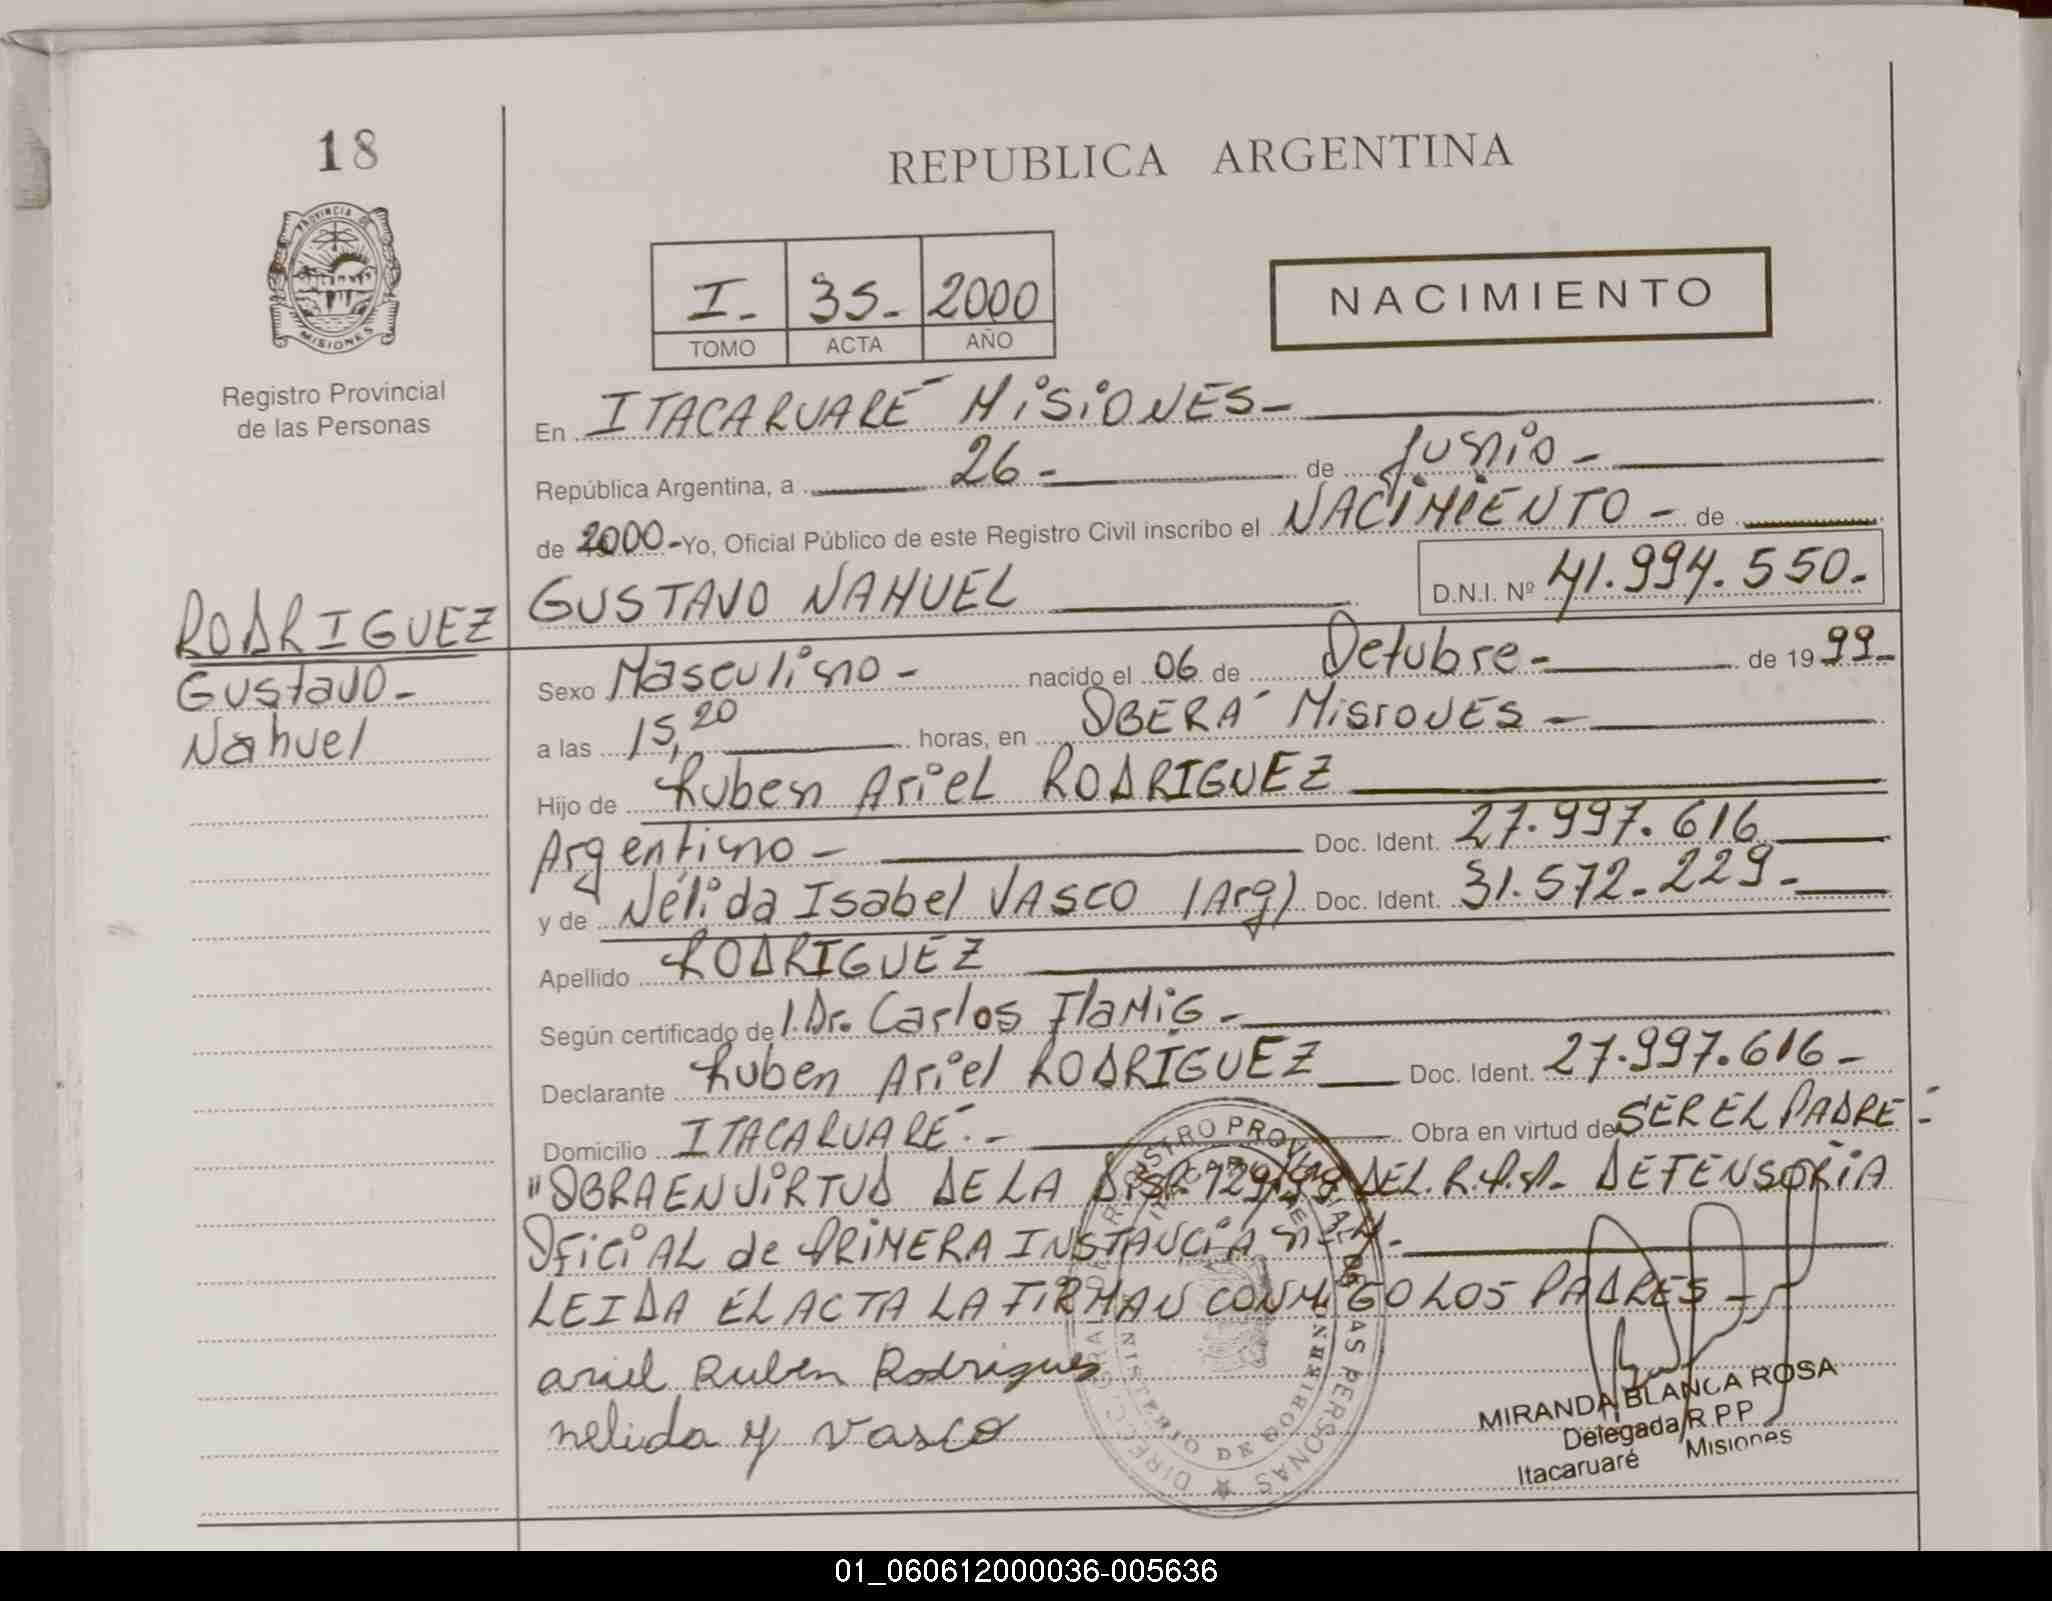 18
REPUBLICA ARGENTINA
PROVINCIA DE
MISIONES
Registro Provincial
de las Personas
I- 35- 2000
TOMO ACTA AÑO
NACIMIENTO
En ITACARUARÉ MISIONES-
República Argentina, a 26- de Junio-
de 2000-Yo, Oficial Público de este Registro Civil inscribo el NACIMIENTO - de
GUSTAVO NAHUEL D.N.I. Nº 41.994.550.-
RODRIGUEZ
Gustavo-
Nahuel
Sexo Masculino- nacido el 06 de Octubre- de 1999-
a las 15,20 horas, en OBERÁ MISIONES-
Hijo de Ruben Ariel RODRIGUEZ
Argentino- Doc. Ident. 27.997.616
y de Nélida Isabel VASCO (Arg) Doc. Ident. 31.572.229-
Apellido RODRIGUEZ
Según certificado de 1.Dr. Carlos FlaMiG-
Declarante Ruben Ariel RODRIGUEZ Doc. Ident. 27.997.616-
Domicilio ITACARUARÉ.- Obra en virtud de SER EL PADRE-
"OBRA EN VIRTUD DE LA DISP. 129/98 DEL R.P.P. DEFENSORIA
OFICIAL de PRIMERA INSTANCIA
LEIDA EL ACTA LA FIRMAN CONMIGO LOS PADRES-
ariel Ruben Rodrigues
nelida y vasco
MIRANDA BLANCA ROSA
Delegada R.P.P
Itacaruaré Misiones
MINISTERIO DE GOBIERNO
01_060612000036-005636